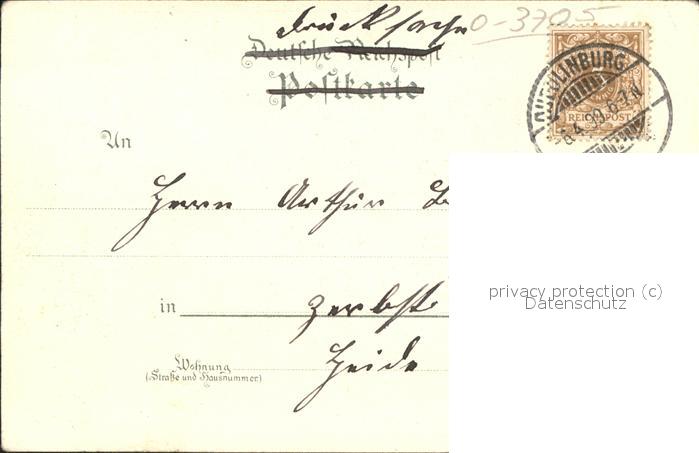 Drucksache
0-3705
Deutsche Reichspost
Postkarte
QUEDLINBURG
REICHSPOST
An
Herrn Arthur
privacy protection (c)
Datenschutz
in Zerbst
Heide
Wohnung
(Straße und Hausnummer)